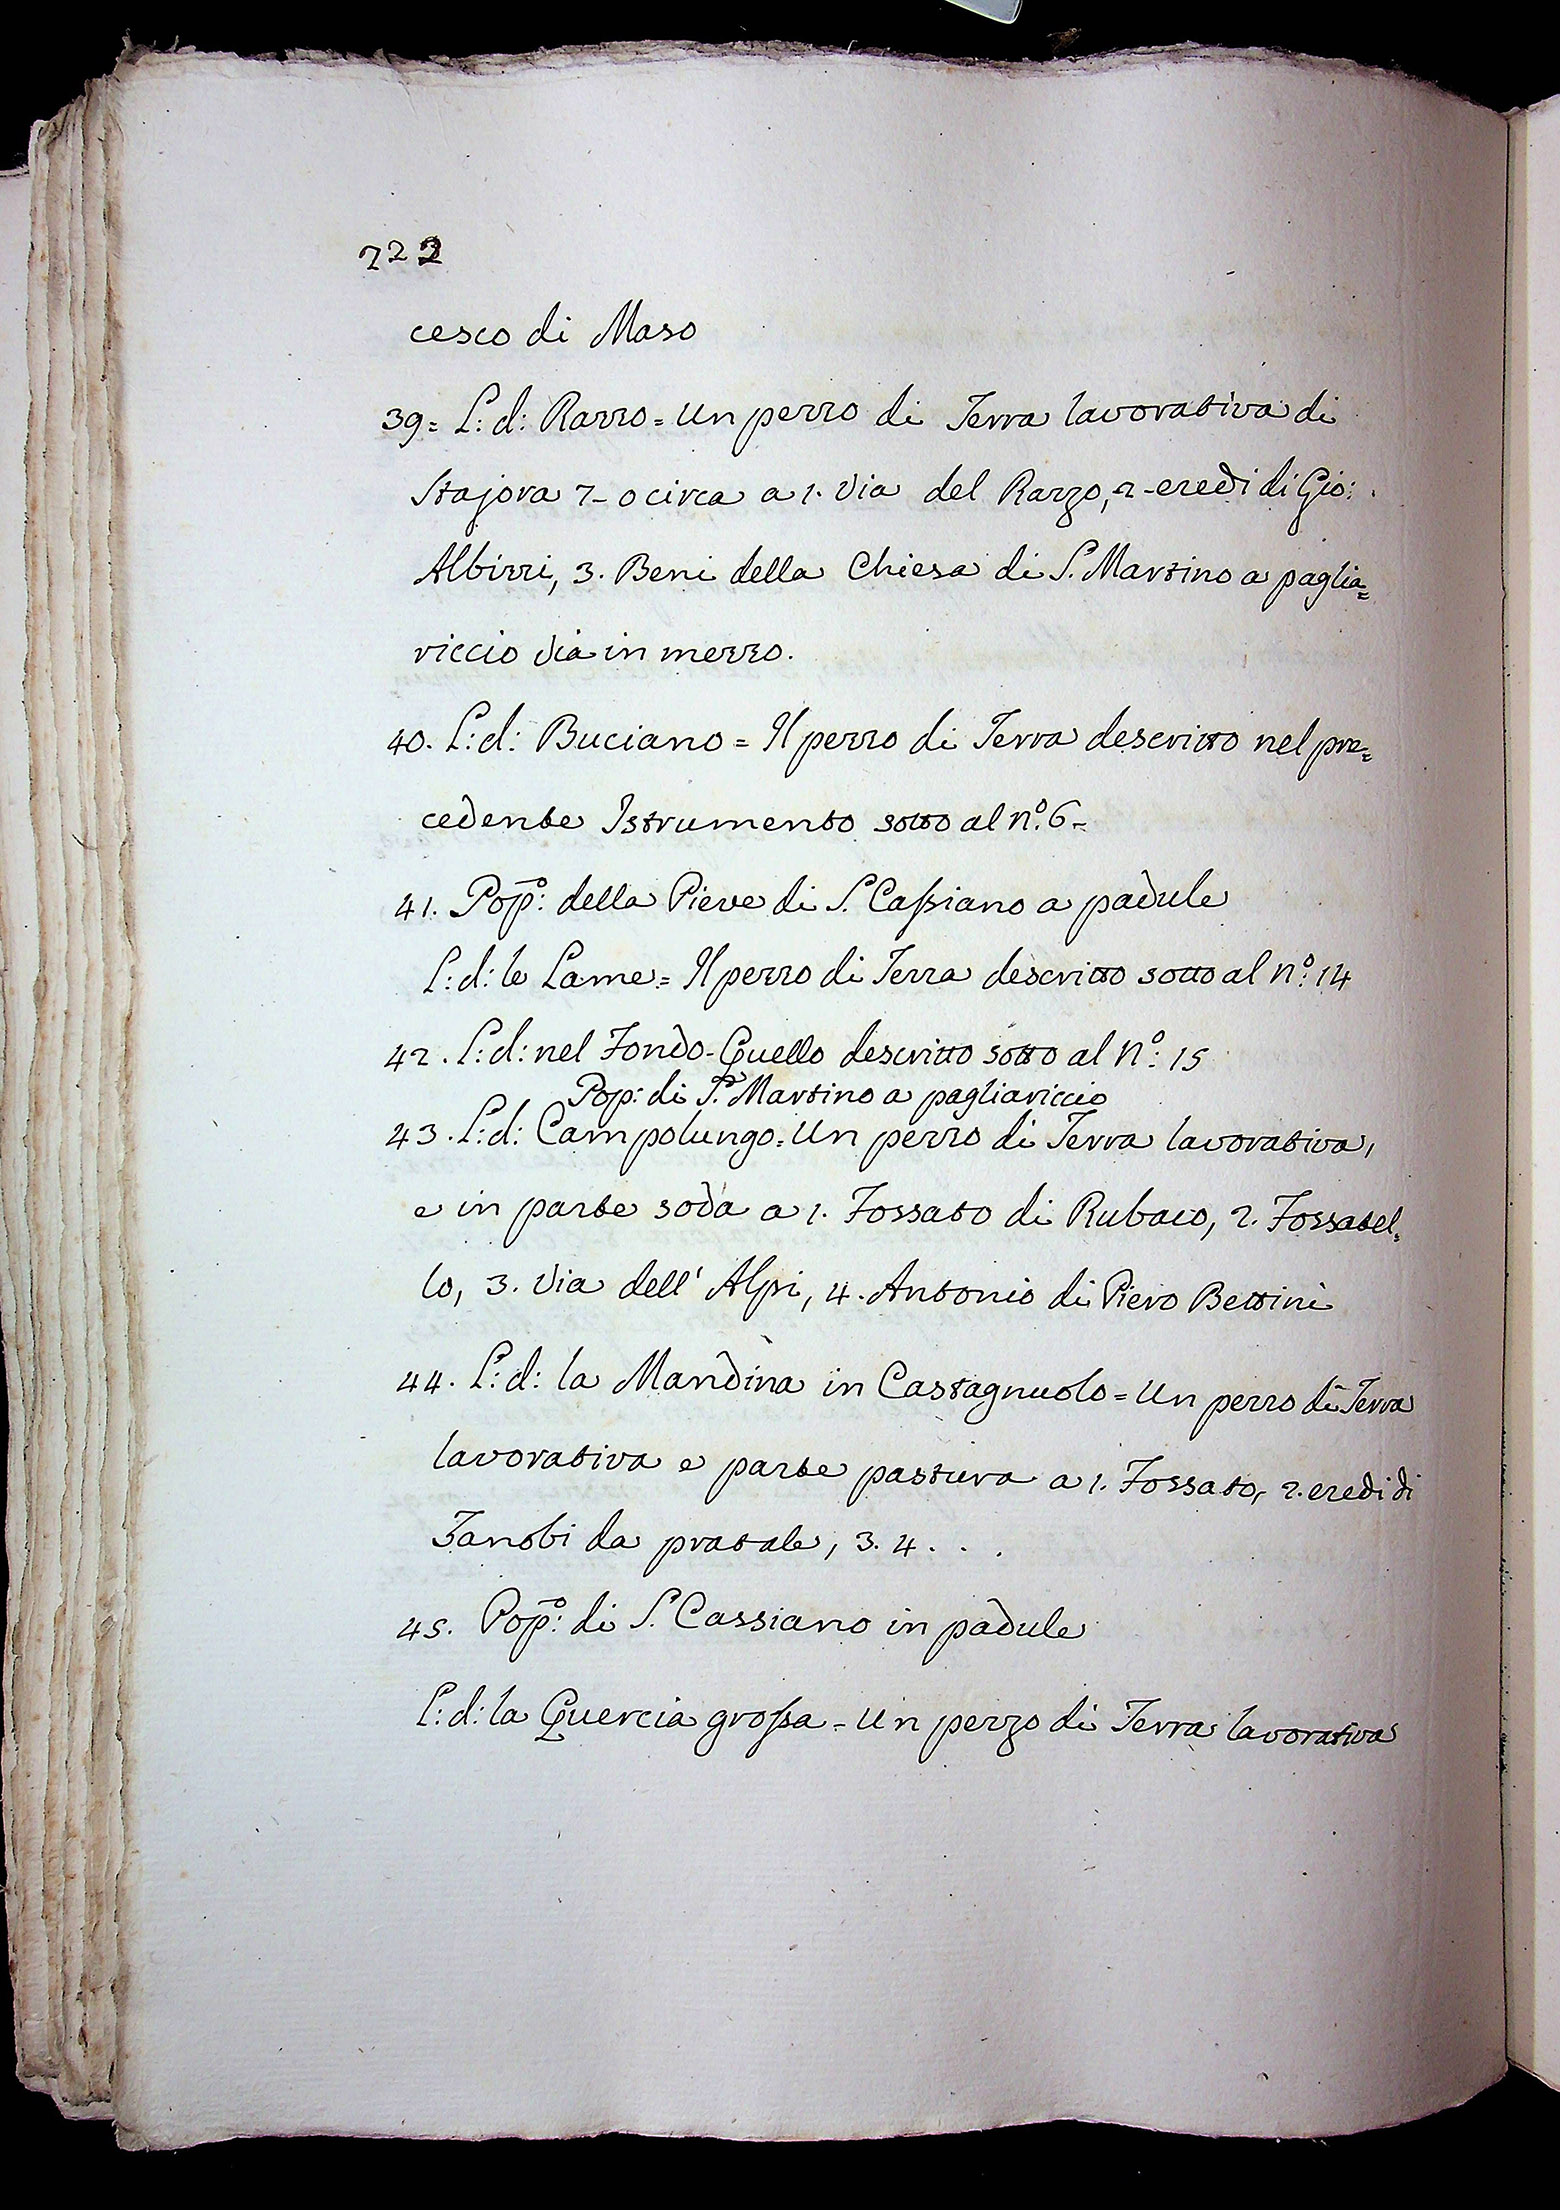 222
cesco di Maso
39= L: d: Razzo = Un pezzo di Terra lavorativa di
Stajora 7- o circa a 1. Via del Razzo, 2- eredi di Gio:
Albizzi, 3. Beni della Chiesa di S. Martino a paglia=
riccio via in mezzo.
40. L: d: Buciano = Il pezzo di Terra descritto nel pre=
cedente Istrumento sotto al n.º 6-
41. Pop.º: della Pieve di S. Cassiano a padule
L: d: le Lame = Il pezzo di Terra descritto sotto al n.º 14
42. L: d: nel Fondo - Quello descritto sotto al N.º: 15
Pop: di S. Martino a pagliariccio
43. L: d: Campolungo = Un pezzo di Terra lavorativa,
e in parte soda a 1. Fossato di Rubaco, 2. Fossatel=
lo, 3. Via dell' Alpi, 4. Antonio di Piero Bettini
44. L: d: la Mandina in Castagnuolo = Un pezzo di Terra
lavorativa e parte pastura a 1. Fossato, 2. eredi di
Zanobi da pratale, 3. 4. . .
45. Pop.º: di S. Cassiano in padule
L: d: la Quercia grossa = Un pezzo di Terra lavorativa